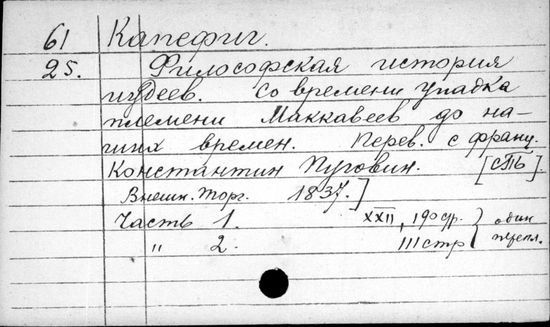 61 Капефиг.
25. Философская история
иудеев. Со времени упадка
племени Маккавеев до на-
ших времен. Перев. с франц.
Константин Пуговин. [СПб
Внешн. Торг. 1837.]
Часть 1. XXII, 190 стр. } один
" 2. 111 стр } перепл.